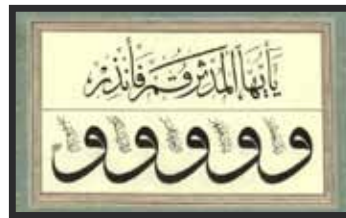 يَا أَيُّهَا الْمُدَّثِّرُ قُمْ فَأَنْذِرْ
و و و و و